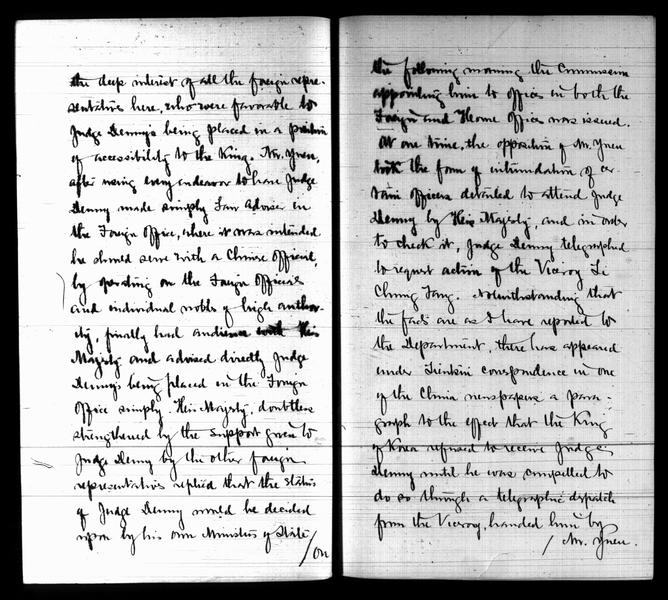 the deep interest of all the foreign repre-
sentatives here, who were favorable to
Judge Denny's being placed in a position
of accessibility to the King. Mr. Yuen,
after using every endeavor to have Judge
Denny made simply Law Adviser in
the Foreign Office, where it was intended
he should serve with a Chinese Official,
by operating on the Foreign Officials
and individual nobles of high author-
ity, finally had audience with His
Majesty and advised directly Judge
Denny's being placed in the Foreign
Office simply. His Majesty, doubtless
strengthened by the support given to
Judge Denny by the other foreign
representatives replied that the status
of Judge Denny would be decided
upon by his own Ministers of State
/On
the following morning the Commission
appointing him to offices in both the
Foreign and Home Offices was issued.
At one time, the opposition of Mr. Yuen
took the form of intimidation of cer
tain officers detailed to attend Judge
Denny by His Majesty, and in order
to check it, Judge Denny telegraphed
to request action of the Viceroy Li
Chung Tang. Notwithstanding that
the facts are as I have reported to
the Department, there has appeared
under Tientsin correspondence in one
of the China newspapers a para-
graph to the effect that the King
of Korea refused to receive Judge
Denny until he was compelled to
do so through a telegraphic dispatch
from the Viceroy, handed him by
/ Mr. Yuen.